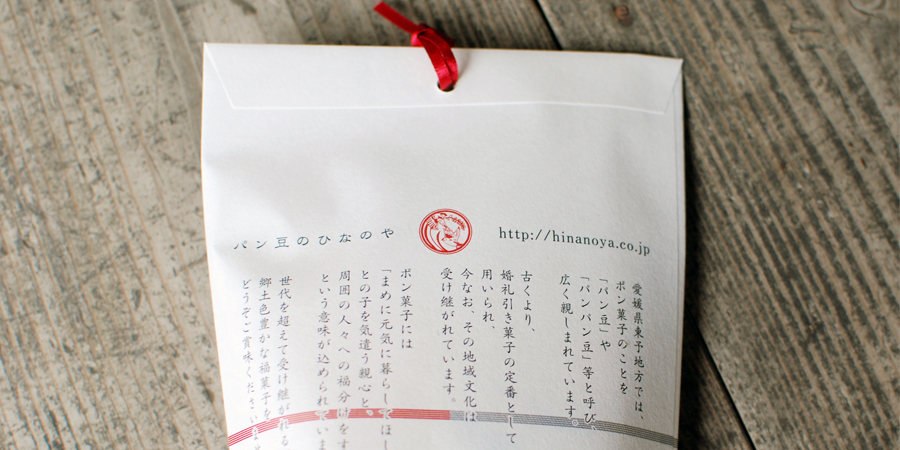 パン豆のひなのや
http://hinanoya.co.jp
愛媛県東予地方では、
ポン菓子のことを
「パン豆」や
「パンパン豆」等と呼び、
広く親しまれています。
古くより、
婚礼引き菓子の定番として
用いられ、
今なお、その地域文化は
受け継がれています。
ポン菓子には
「まめに元気に暮らしてほし
との子を気遣う親心と、
周囲の人々への福分けをす
という意味が込められていま
世代を超えて受け継がれる
郷土色豊かな福菓子を
どうぞご賞味くださいませ